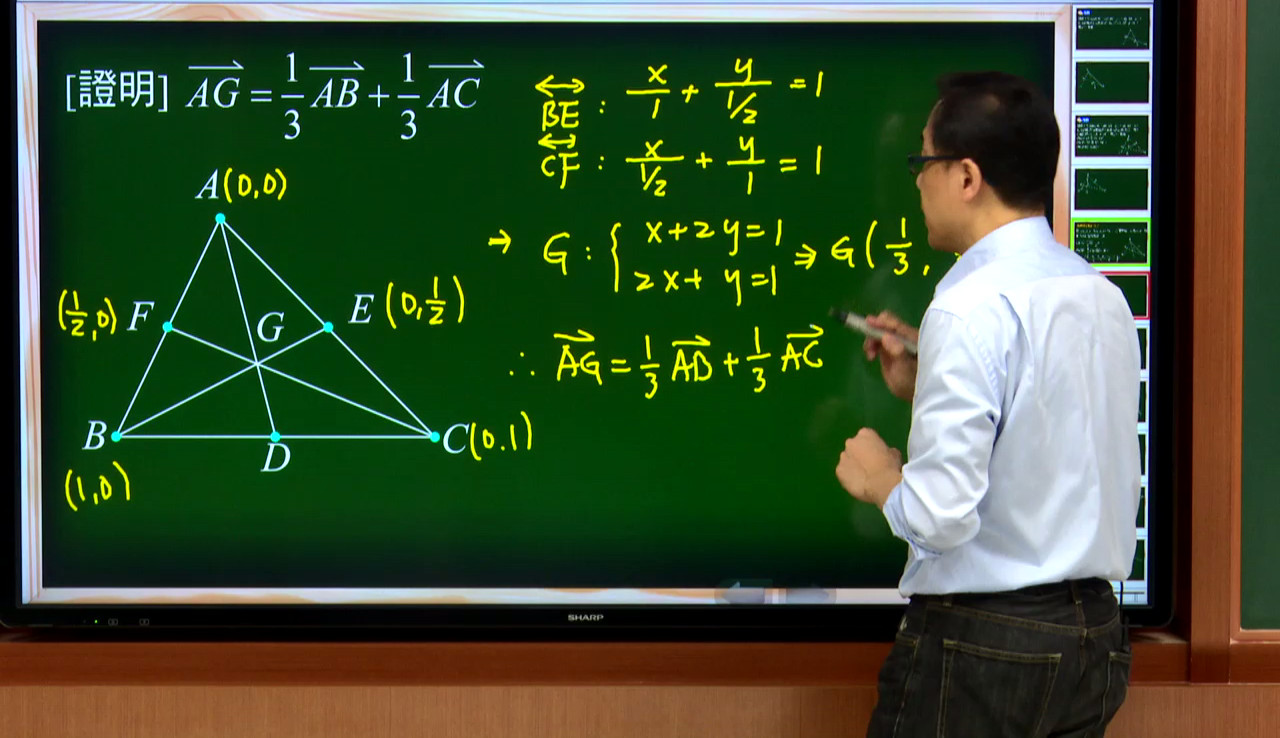 [證明] AG = 1/3 AB + 1/3 AC
A(0,0)
(1/2,0) F
E (0,1/2)
G
B
D
C(0.1)
(1,0)
BE : x/1 + y/(1/2) = 1
CF : x/(1/2) + y/1 = 1
⇒ G : { x+2y=1
2x+y=1 ⇒ G(1/3,
∴ AG = 1/3 AB + 1/3 AC
SHARP